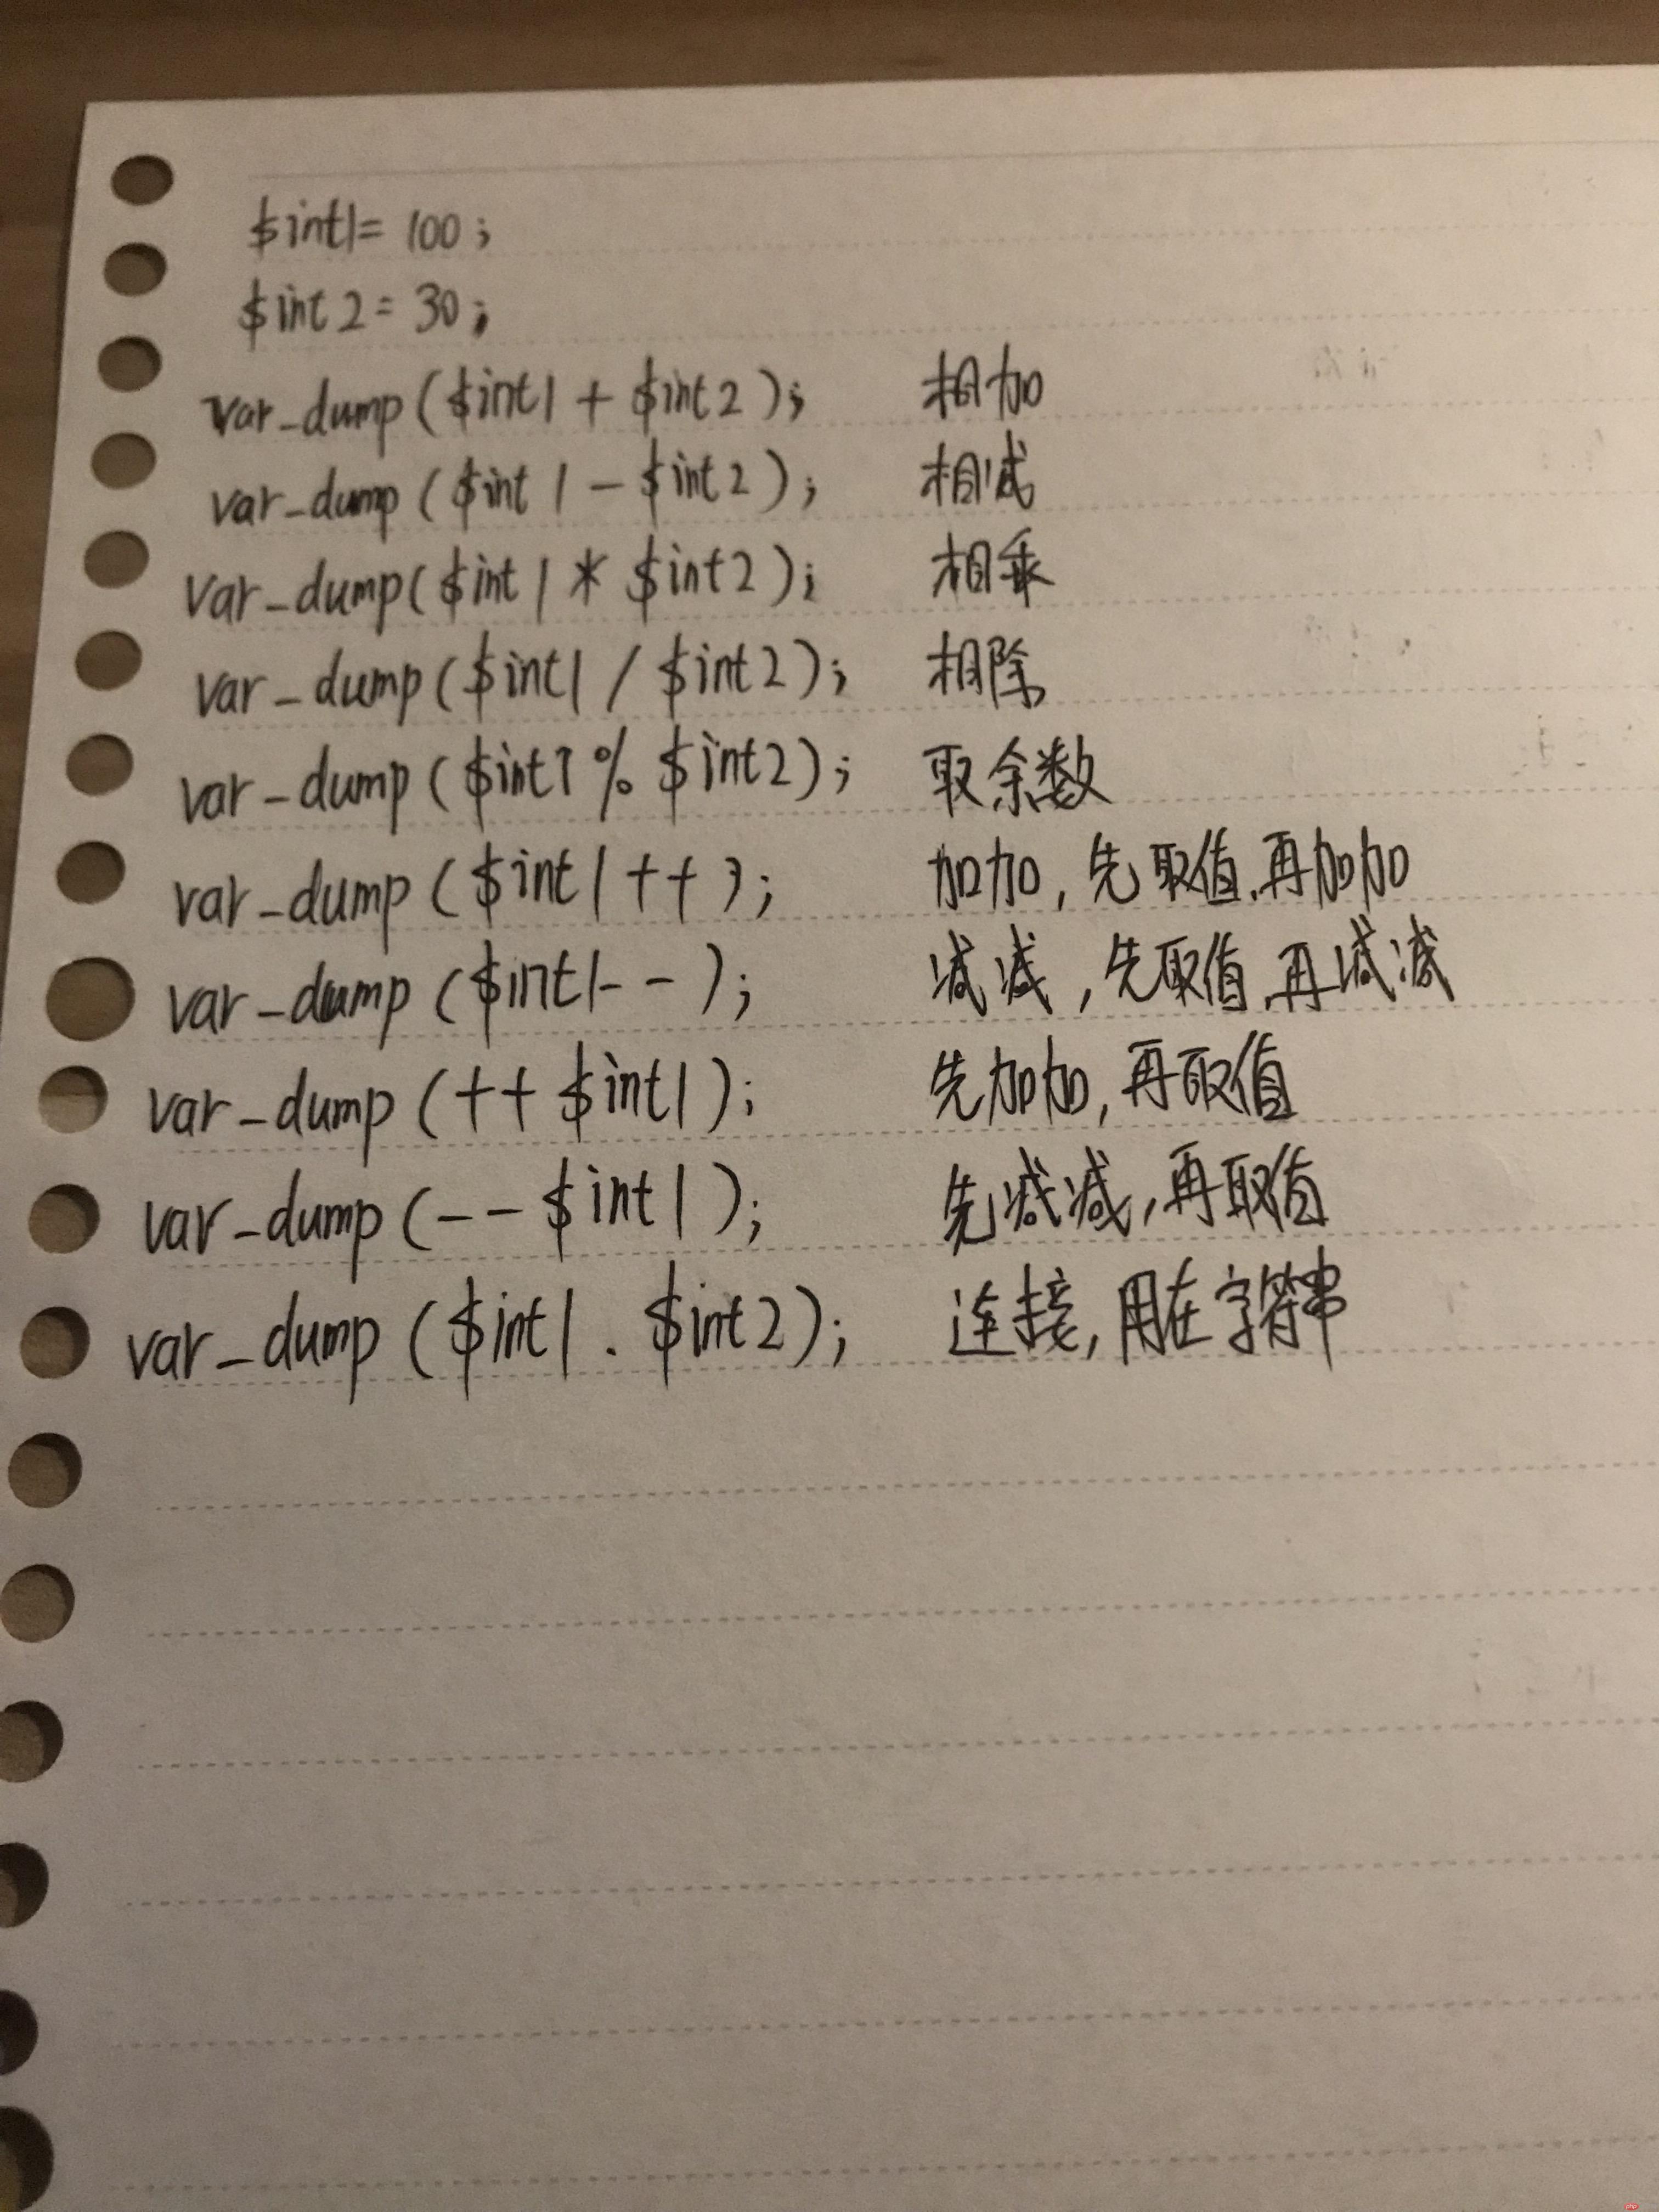 $int1= 100;
$int2= 30;
var_dump($int1 + $int2); 相加
var_dump($int1 - $int2); 相减
var_dump($int1 * $int2); 相乘
var_dump($int1 / $int2); 相除
var_dump($int1 % $int2); 取余数
var_dump($int1++); 加加,先取值,再加加
var_dump($int1--); 减减,先取值,再减减
var_dump(++$int1); 先加加,再取值
var_dump(--$int1); 先减减,再取值
var_dump($int1 . $int2); 连接,用在字符串